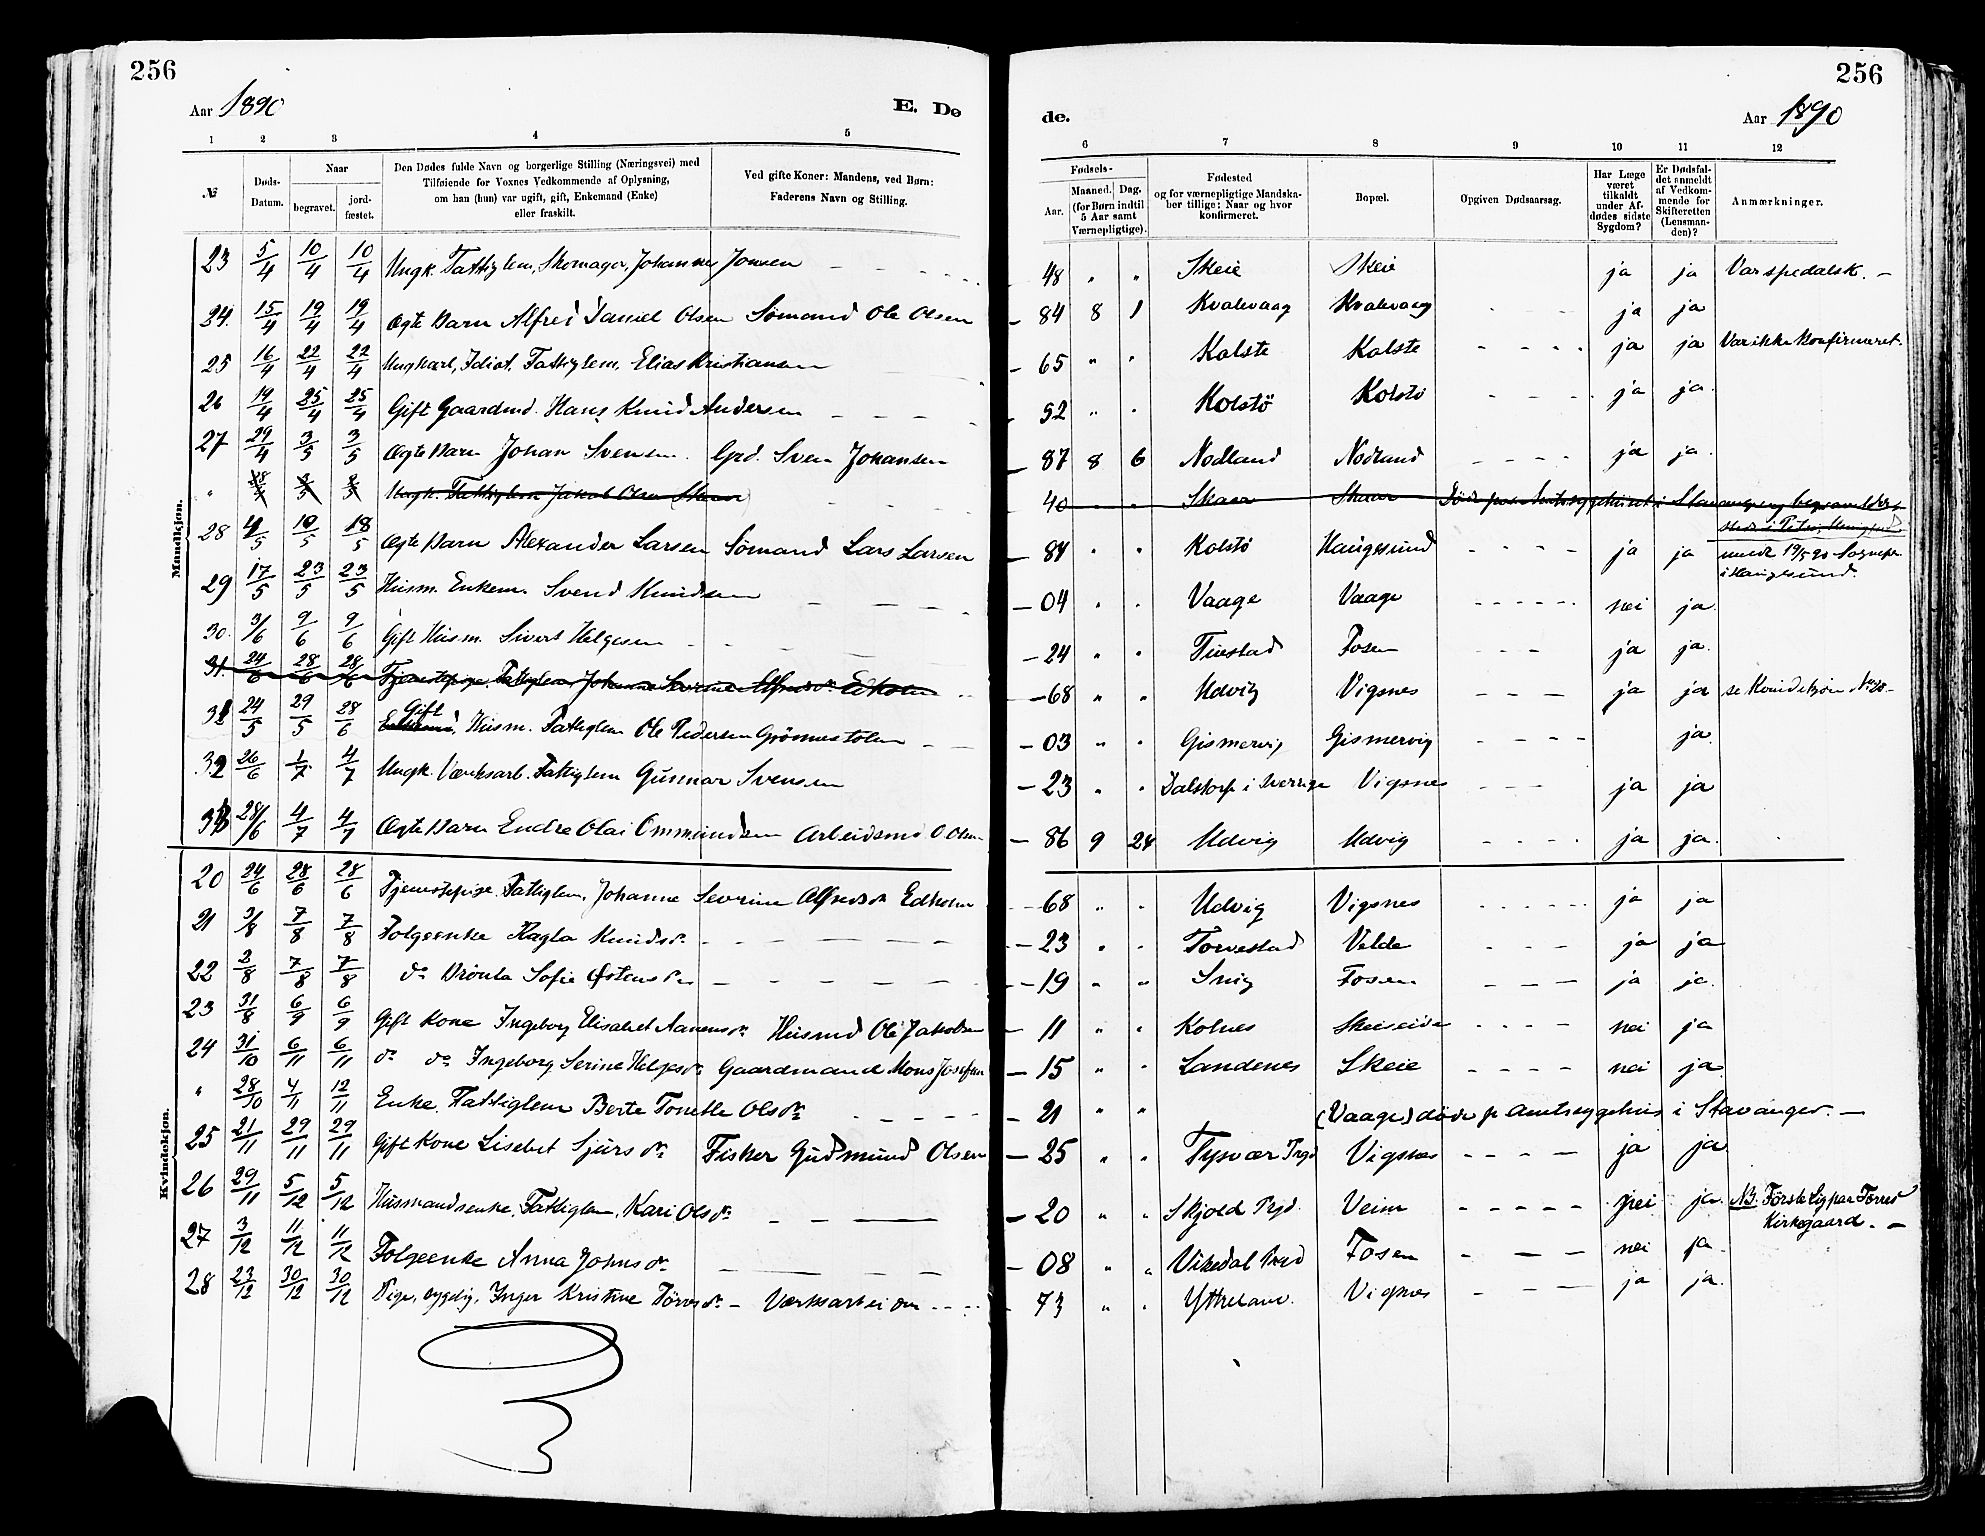 256
256
Aar 1890
E. Dø
de.
Aar 1890
1 2 3 4 5
6 7 8 9 10 11 12
№
Døds-Datum.
Naar
begravet.
jord-fæstet.
Den Dødes fulde Navn og borgerlige Stilling (Næringsvei) med
Tilføiende for Voxnes Vedkommende af Oplysning,
om han (hun) var ugift, gift, Enkemand (Enke)
eller fraskilt.
Ved gifte Koner: Mandens, ved Børn:
Faderens Navn og Stilling.
Fødsels-
Aar.
Maaned. Dag.
(for Børn indtil
5 Aar samt
Værnepligtige).
Fødested
og for værnepligtige Mandska-
ber tillige: Naar og hvor
konfirmeret.
Bopæl.
Opgiven Dødsaarsag.
Har Læge
været
tilkaldt
under Af-
dødes sidste
Sygdom?
Er Dødsfal-
det anmeldt
af Vedkom-
mende for
Skifteretten
(Lensman-
den)?
Anmærkninger.
Mandkjøn.
23 5/4 10/4 10/4 Ungk. Fattiglem, Skomager, Johannes Jonsen - 48 " " Skeie Skeie ja ja Var spedalsk. -
24. 15/4 19/4 19/4 Ægte Barn Alfred Daniel Olsen Sømand Ole Olsen - 84 8 1 Kvalevaag Kvalevaag ja ja
25 16/4 22/4 22/4 Ungkarl, Idiot. Fattiglem. Elias Kristiansen - 65 " " Kolstø Kolstø ja ja Var ikke konfirmeret.
26 19/4 25/4 25/4 Gift Gaardmd. Hans Knud Andersen - 52 " " Kolstö Kolstö ja ja.
27 29/4 3/5 3/5 Ægte Barn Johan Svensen. Grd. Sven Johansen - 87 8 6 Nodland Nodland ja ja.
" Ungk. Fattiglem Jakob Olsen (Skaar) - 40 " " Skaar Skaar Døde paa Amtssygehuset i Stavanger og begravet
28 4/5 10/5 18/5 Ægte Barn Alexander Larsen Sømand Lars Larsen - 84 " " Kolstø Haugesund ja ja meldt 19/5 90 Sognepr.
i Haugesund.
29 17/5 23/5 23/5 Husm. Enkem. Svend Knudsen - 04 " " Vaage Vaage nei ja.
30. 3/6 9/6 9/6 Gift Husm. Sivert Helgesen - 24 " " Fosen ja ja.
31. 24/6 28/6 28/6 Tjenestepige. Fattiglem Johanne Severine Alfredsdr. Edholm - 68 " " Udvig Vigsnes ja ja se Kvindekjøn №20.
31 24/5 29/5 28/6 Gift Husm. Fattiglem Ole Pedersen Grönnestolen - 03 " " Gismervig Gismervig ja.
32 26/6 1/7 4/7 Ungk. Værksarb. Fattiglem Gunnar Svensen - 23 " " Dalstorp i Sverrige Vigsnes ja ja
33 28/6 4/7 4/7 Ægte Barn Endre Olai Ommundsen Arbeidsmd O. Olsen - 86 9 24 Udvig Udvig ja ja.
Kvindekjøn.
20 24/6 28/6 28/6 Tjenestepige. Fattiglem. Johanne Severine Alfredsdr. Edholm - 68 " " Udvig Vigsnes ja ja
21 3/8 7/8 7/8 Folgeenke Magla Knudsdr. - 23 " " Torvestad Velde ja ja
22 2/8 7/8 7/8 do Sofie Østensdr. - 19 " " Fosen ja ja.
23 31/8 6/9 6/9 Gift Kone Ingeborg Elisabet Aanensdr. Husmd Ole Jakobsen - 11 " " Kolnes Skeiseide nei ja
24 31/10 6/11 6/11 do do Ingeborg Serine Helgesdr. Gaardmand Mons Josefsen - 15 " " Sandenes Skeie nei ja
" 28/10 4/11 12/11 Enke. Fattiglem Berte Tonette Olsdr. - 21 " " (Vaage) døde p. Amtssygehus i Stavanger. -
25 21/11 29/11 29/11 Gift Kone Lisebet Sjursdr. Fisker Gudmund Olsen - 25 " " Tysvær Prgd Vigsnes ja ja
26 29/11 5/12 5/12 Husmandsenke, Fattiglem, Kari Olsdr. - 20 " " Skjold Prgd. Veim nei ja. NB. Første Lig paa Torvest
Kirkegaard. -
27 3/12 11/12 11/12 Folgeenke Anna Johnsdr. - 08 " " Vikedal Prgd Fosen nei ja.
28 23/12 30/12 30/12 Pige, sygelig, Inger Kristine Törresdr. - Værksarbeider - 73 " " Ytreland. Vigsnes ja ja.